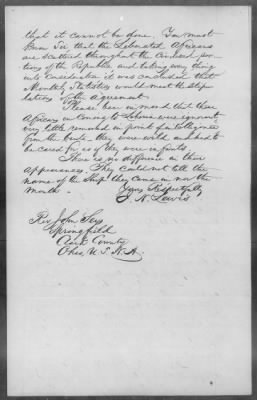 that it cannot be done. You must
bear Sir that the Liberated Africans
are scattered throughout the
tions of the Republic and taking every thing
into consideration it was concluded that
Monthly Statistics would meet the stipu
lations of the agreement.
Please bear in mind that these
Africans on coming to Liberia were ignorant
very little removed in point of intelligence
from the brute - they were and had to
be cared for, as if they were infants.
There is no difference in their
appearances. They could not tell the
name of the Ship they came in nor the
month.
Yours Respectfully
J. N. Lewis
Rev John Seys
Springfield
County
Ohio, U. S. N. A.